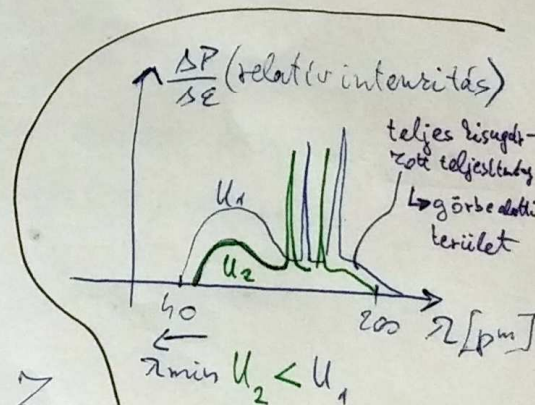 ΔP/Δε (relatív intenzitás)
teljes kisugár-
zott teljesítmény
↳ görbe alatti
terület
U₁
U₂
40
200
λ [pm]
←
λmin U₂ < U₁